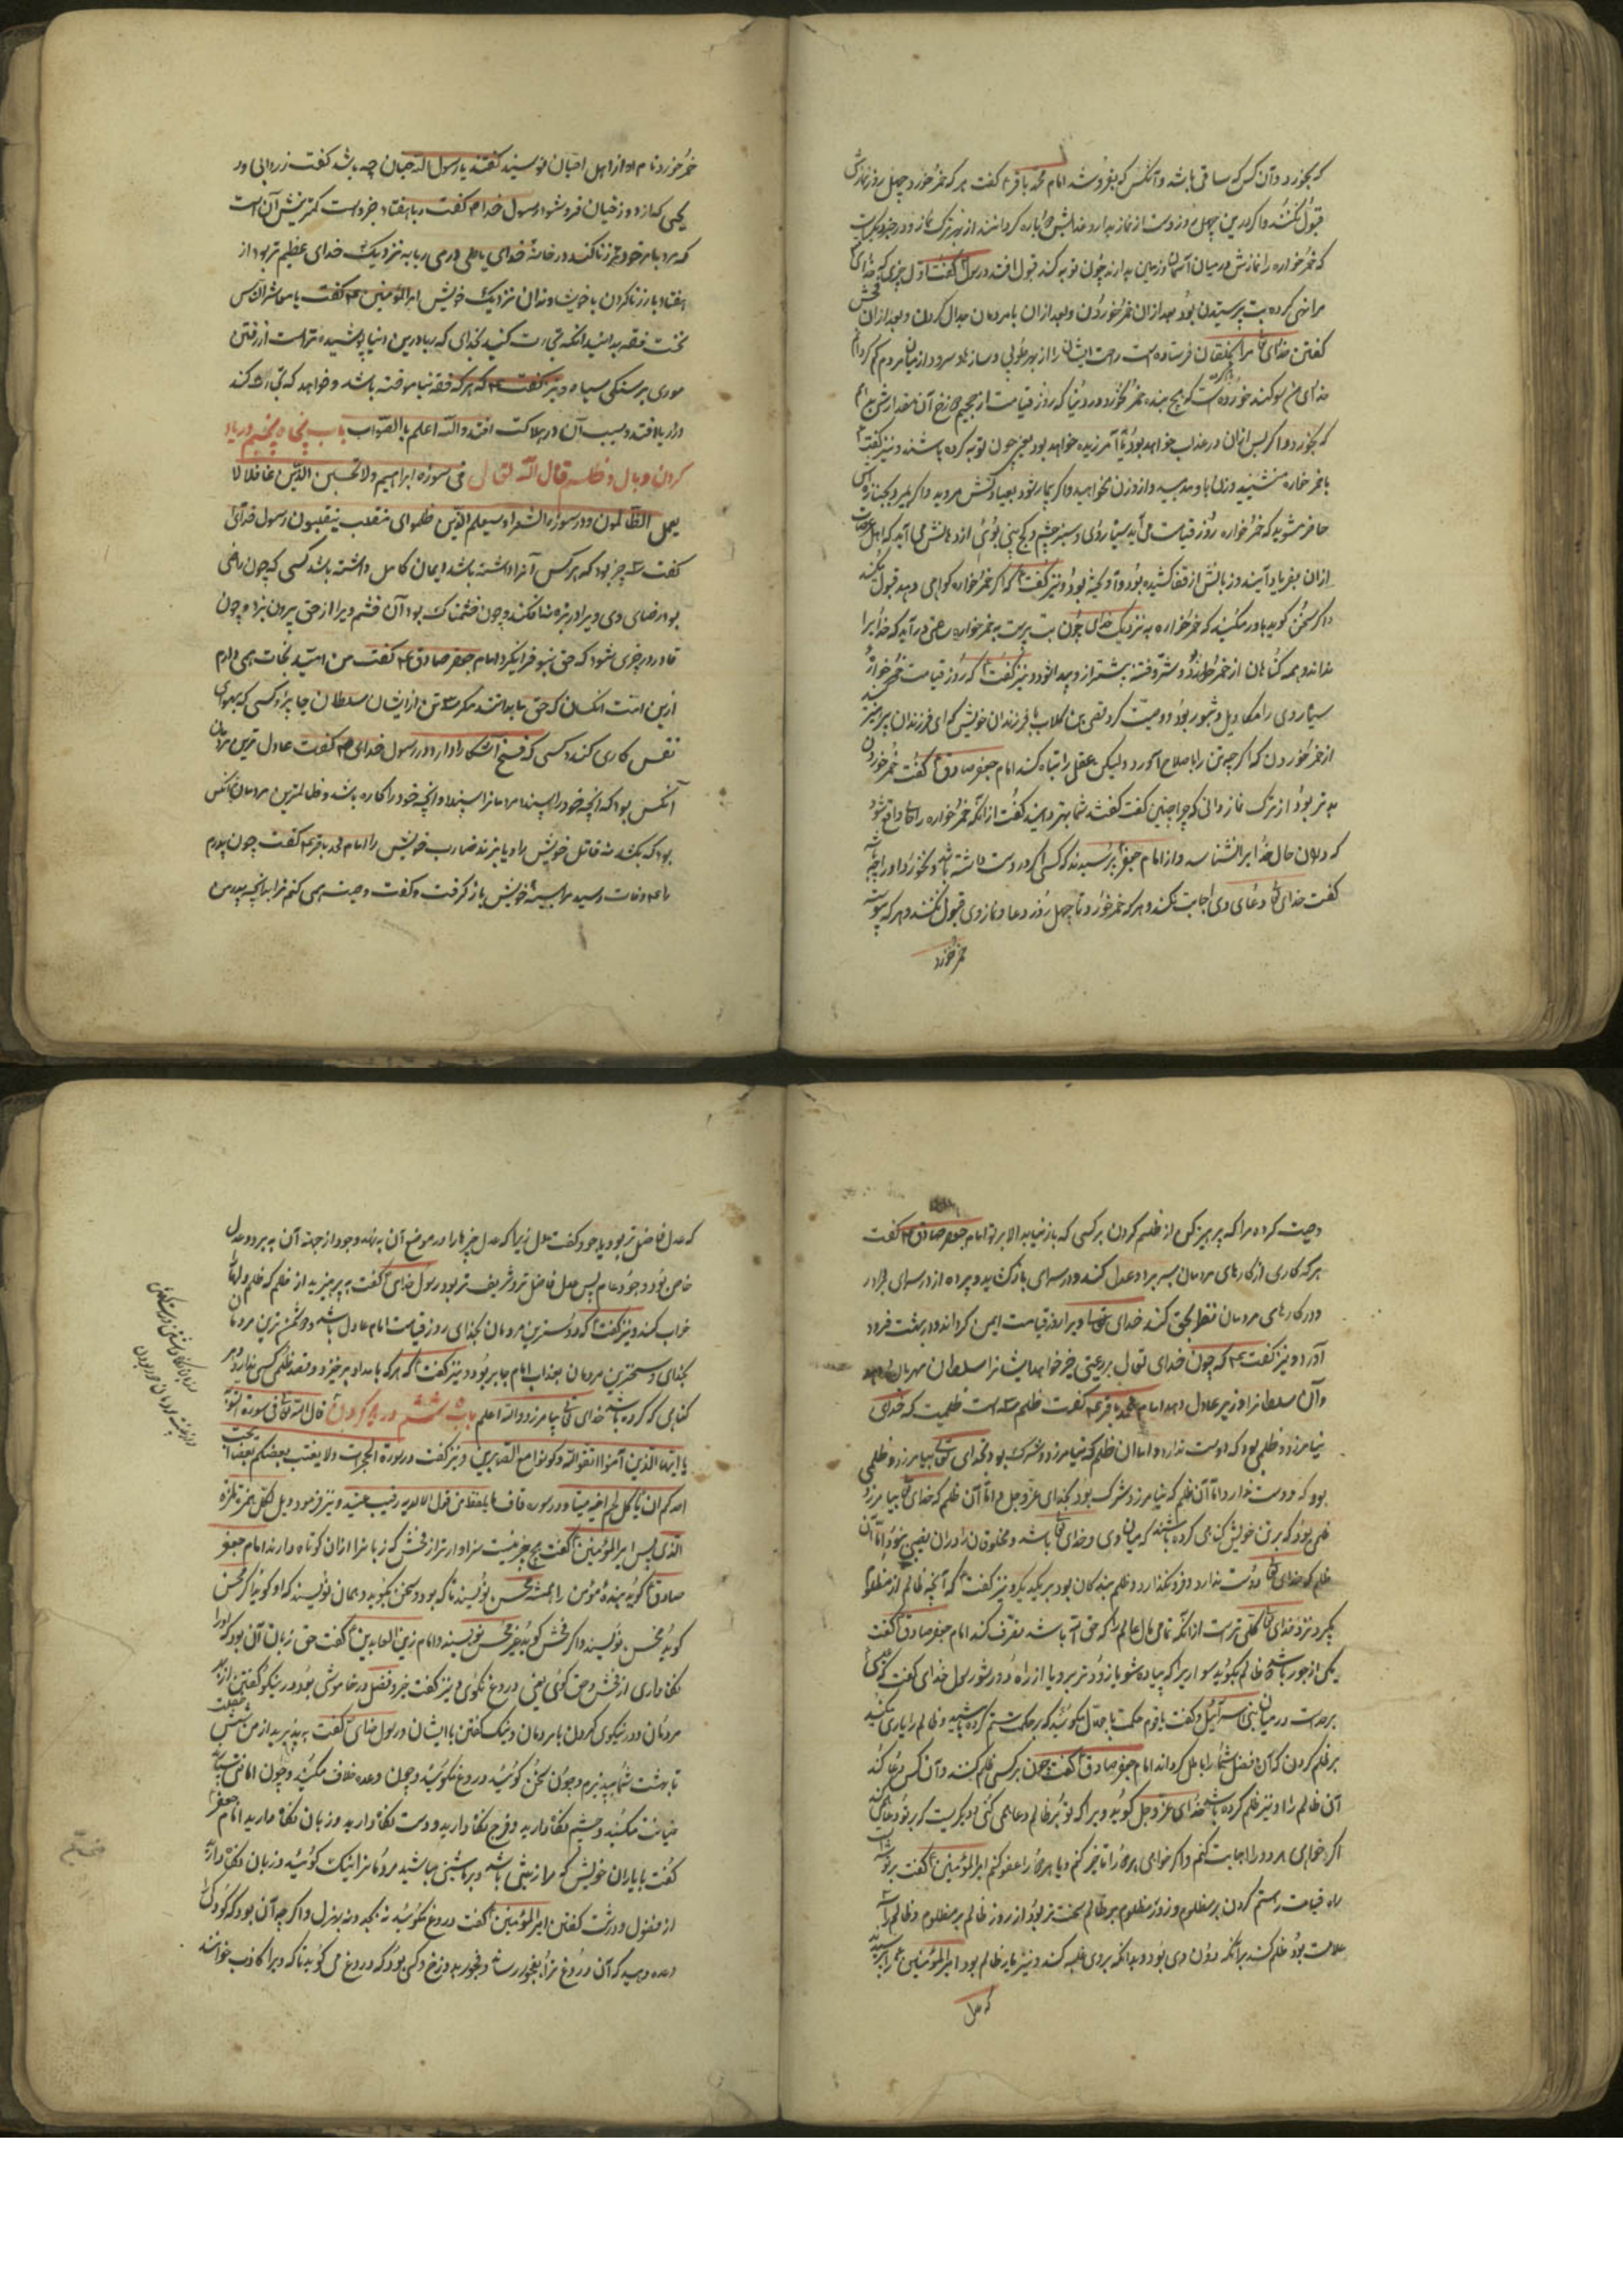 که بخورد و آن کس که ساقی باشد و آنکس که بفروشد امام محمد باقر ع گفت هر که خمر خورد چهل روز نمازش
قبول نکنند و اگر درین چهل روز دست از نماز بدارد عذابش دوباره گردانند از بهر ترک نماز و در خبر دیگرست
که خمر خواره را نمازش در میان آسمان و زمین بدارند چون توبه کند قبول افتد و رسول گفت اول چیزی که خدای
مرا نهی کرد بت پرستیدن بود بعد از آن خمر خوردن و بعد از آن با مردمان جدال کردن و بعد از آن فحش
گفتن خدای تعالی مرا بخلقان فرستاده است رحمت ایشان را از بهر طلوبی و سازها و سرود از میان مردم کم کردن
خدای من سوگند خورده است که هیچ بنده خمر نخورد در دنیا که روز قیامت از جحیم دوزخ آن مقدارش بدهم
که بخورد و اگر پس از آن در عذاب خواهد بود یا آمرزیده خواهد بود یعنی چون توبه کرده باشند و نیز گفت
با خمر خواره منشینید و زن با وی مدهید و از او زن مخواهید و اگر بیمار شود بعیادتش مروید و اگر بمیرد بجنازه اش
حاضر مشوید که خمر خواره روز قیامت می آید سیاه روی و سبز چشم و کج بینی بوئی از دهانش می آید که اهل عرصات
از آن بفریاد آیند و زبانش از قفا کشیده بود و آویخته بود و نیز گفت که اگر خمر خواره گواهی دهد قبول نکنید
و اگر سخن گوید باور مکنید که خمر خواره به نزدیک خدای چون بت پرست به خمر خواره حتی در آید که خدا را
نداند و همه گناهان از خمر خیزد و شر و فتنه بیشتر از وی پیدا شود و نیز گفت که روز قیامت خمر خواره
سیاه روی را مکاویل و شبور بود و وصیت کرد قصی بن کلاب با فرزندان خویش که ای فرزندان بپرهیزید
از خمر خوردن که اگرچه تن را باصلاح آورد ولیکن عقل را تباه کند امام جعفر صادق گفت خمر خوردن
بدتر بود از ترک نماز دانی که چرا چنین گفت گفتند شما بهتر دانید گفت از آنکه خمر خواره را گاه واقع شود
که در آن حال خدا را نشناسد و از امام جعفر پرسیدند که کسی که دوست داشته باشد و نخورد او را چه باشد
گفت خدای تعالی دعای وی اجابت نکند و هر که خمر خورد تا چهل روز دعا و نماز وی قبول نکنند و هر که پیوسته
خمر خورد
خمر خورد نام او از اهل خبال نویسند گفتند یا رسول الله خبال چه باشد گفت زرد آبی و ریمی
که از دوزخیان فرو شود رسول خدا ص گفت ربا هفتاد جزو است کمترینش آن است
که مرد با مادر خود زنا کند در خانه خدای یا طی درمی ربا به نزدیک خدای عظیم تر بود از
هفتاد بار زنا کردن با خویشاوندان نزدیک خویش امیرالمؤمنین ع گفت یا معاشر الناس
نخست فقه بدانید آنگه تجارت کنید بخدای که ربا درین دنیا پوشیده تر است از رفتن
موری بر سنگی سیاه و نیز گفت ع که هر که فقه نیاموخته باشد و خواهد که تجارت کند
در ربا افتد و بسبب آن در هلاکت افتد والله اعلم بالصواب باب پنجاه پنجم در یاد
کردن وبال و ظلم قال الله تعالی فی سورة ابراهیم ولا تحسبن الله غافلا
یعمل الظالمون و در سورة الشعرا و سیعلم الذین ظلموا ای منقلب ینقلبون رسول خدای
گفت سه چیز بود که هر کس آنرا داشته باشد ایمان کامل داشته باشد کسی که چون راضی
بود رضای وی ویرا در بزه نیفکند و چون خشمناک بود آن خشم ویرا از حق بیرون نبرد و چون
قادر بر چیزی شود که حق نبود فرا نگیرد امام جعفر صادق ع گفت من امید نجات همی دارم
ازین امت آنکسان که حق ما بدانند مگر سه تن از ایشان سلطان جابر و کسی که بهوای
نفس کاری کند و کسی که فسق آشکارا دارد و رسول خدای ص گفت عادل ترین مردمان
آنکس بود که آنچه خود را پسندد مردمانرا پسندد و آنچه خود را کاره باشد و ظالمترین مردمان آنکس
بود که بکشد نه قاتل خویش را و یا بزند نه ضارب خویش را امام محمد باقر ع گفت چون پدرم
را ع وفات رسید مرا بسینه خویش باز گرفت و گفت وصیت همی کنم ترا بدانچه پدر من
وصیت کرد مرا که بپرهیز کن از ظلم کردن بر کسی که باز نیابد الا بر تو امام جعفر صادق ع گفت
هر که کاری از کارهای مردمان بسر برد و عدل کند و در سرای باز گشاید و پرده از در سرای بردارد
و در کارهای مردمان نظر بحق کند خدای تعالی ویرا روز قیامت ایمن گرداند و در بهشت فرود
آورد و نیز گفت ع که چون خدای تعالی بر رعیتی خیر خواهد ایشانرا سلطان مهربان دهد
و آن سلطانرا وزیر عادل دهد امام محمد باقر ع گفت ظلم سه است ظلمیست که خدای
نیامرزد و ظلمی بود که دوست ندارد و اما آن ظلم که نیامرزد شرک بود و بخدای تعالی بیامرزد و ظلمی
بود که دوست ندارد اما آن ظلم که نیامرزد شرک بود بخدای عز و جل و اما آن ظلم که خدای تعالی بیامرزد
ظلمی بود که بر تن خویش گناهی کرده باشند که میان وی و خدای تعالی باشد و مخلوقان را در آن نصیبی نبود و اما آن
ظلم که خدای تعالی دوست ندارد و فرو نگذارد و ظلم بندگان بود بر یکدیگر و نیز گفت ع که آنچه ظالم از مظلوم
بگیرد نزد خدای تعالی گتی تر است از آنکه تمامی مال عالم را که حق الله باشد تصرف کند امام جعفر صادق گفت
یکی از جور باشد که ظالم بگوید سوار را که پیاده شو یا زودتر برو یا از راه دور شو رسول خدای گفت که عیسی
برخاست در میان بنی اسرائیل و گفت یا قوم حکمت با جهال مگوئید که بر حکمت ستم کرده باشید و ظالم را یاری مکنید
بر ظلم کردن که آن فضل شما را باطل گرداند امام جعفر صادق گفت چون بر کسی ظلم کنند و آن کس دعا کند
آن ظالم را و نیز ظلم کرده باشد خدای عز و جل گوید ویرا که تو بر ظالم دعا همی کنی و دیگریست که بر تو دعا همی کند
اگر خواهی هر دو را اجابت کنم و اگر خواهی هر دو را تأخیر کنم و یا هر دو را عفو کنم امیرالمؤمنین گفت بد توشه ایست
راه قیامت را ستم کردن بر مظلوم و روز مظلوم بر ظالم سخت تر بود از روز ظالم بر مظلوم و ظالم را سه
علامت بود ظلم کند بر آنکه دون وی بود و بدانکه بر وی غلبه کند و نیز یار ظالم بود امیرالمؤمنین را پرسیدند
که عدل
که عدل فاضل تر بود یا جود گفت عدل زیرا که عدل چیزها را در موضع آن بنهد و جود از جهت آن به برد و عدل
خاص بود و جود عام پس عدل فاضل تر و شریف تر بود رسول خدای گفت به پرهیزید از ظلم که ظلم دلها
خراب کند و نیز گفت که دوسترین مردمان بخدای روز قیامت امام عادل باشد و دشمن ترین مردمان
بخدای و سختترین مردمان بعذاب امام جابر بود و نیز گفت که هر که بامداد برخیزد و قصد ظلم کسی ندارد هر
گناهی که کرده باشد خدای تعالی بیامرزد والله اعلم باب پنجاه ششم در یاد کردن قال الله تعالی فی سورة التوبة
یا ایها الذین آمنوا اتقوا الله وکونوا مع الصادقین و نیز گفت در سورة الحجرات ولا یغتب بعضکم بعضا ایحب
احدکم ان یأکل لحم اخیه میتا و در سورة قاف ما یلفظ من قول الا لدیه رقیب عتید و نیز فرمود ویل لکل همزة لمزة
الذی پس امیرالمؤمنین گفت هیچ چیز نیست سزاوارتر از فحش که زبانرا از آن کوتاه دارند امام جعفر
صادق گوید بنده مؤمن را همیشه محسن نویسند تا که بود و سخن نگوید و همان نویسند که او گوید اگر محسن
گوید محسن نویسند و اگر فحش گوید فحش نویسند و امام زین العابدین گفت حق زبان آن بود که او را
نگاه داری از فحش و حق گوئی یعنی دروغ نگوی و نیز گفت خیر و فضل در خاموشی بود و در نیکو گفتن از بهر
مردمان و در نیکوی کردن با مردمان و نیک گفتن با ایشان و رسول خدای گفت به پذیرید از من شش خصلت
تا بهشت شما بپذیرم و چون سخن گوئید دروغ مگوئید و چون وعده خلاف مکنید و چون امانتی بستانید
خیانت مکنید و چشم نگاه دارید و فرج نگاه دارید و دست نگاه دارید و زبان نگاه دارید امام جعفر
گفت با یاران خویش که ما را زینتی باشید و بر ما شینی مباشید مردمانرا نیک گوئید و زبان نگاه دارید
از فضول و درشت گفتن امیرالمؤمنین گفت دروغ مگوئید نه بجد و نه بهزل و اگر چه آن بود که کودک را
وعده دهید که آن دروغ ترا بفجور رساند و فجور بدوزخ و کسی بود که دروغ می گوید تا که ویرا کاذب خوانند